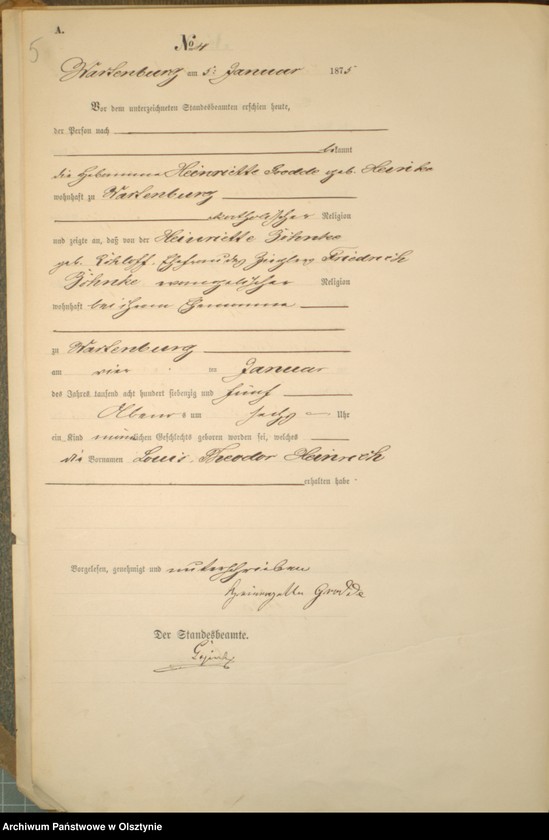 A.
5
No 4
Wartenburg am 5. Januar 1875
Vor dem unterzeichneten Standesbeamten erschien heute,
der Person nach
bekannt
die Hebamme Heinriette Grodde geb.
wohnhaft zu Wartenburg
katholischer Religion
und zeigte an, daß von der Heinriette Zihnke
geb. Ehefrau des Friedrich
Zihnke evangelischer Religion
wohnhaft bei ihrem Ehemanne
zu Wartenburg
am vier ten Januar
des Jahres tausend acht hundert siebenzig und fünf
Abends um sechs Uhr
ein Kind männlichen Geschlechts geboren worden sei, welches
die Vornamen Louis Theodor Heinrich
erhalten habe
Vorgelesen, genehmigt und unterschrieben
Grodde
Der Standesbeamte.
Archiwum Państwowe w Olsztynie